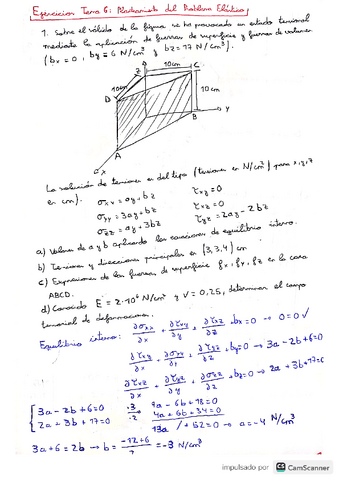 Ejercicios Tema 6: Planteamiento del Problema Elástico
1. Sobre el sólido de la figura se ha provocado un estado tensional
mediante la aplicación de fuerzas de superficie y fuerzas de volumen
(bx = 0 ; by = 6 N/cm³ y bz = 17 N/cm³).
z
10cm
C
10cm
10cm
D
B
y
A
x
La solución de tensiones es del tipo (tensiones en N/cm²) para x, y, z
en cm).
σxx = ay + bz
τxy = 0
σyy = 3ay + bz
τxz = 0
σzz = ay + 3bz
τyz = 2ay - 2bz
a) Valores de a y b aplicando las ecuaciones de equilibrio interno.
b) Tensiones y direcciones principales en (3,3,4) cm
c) Expresiones de las fuerzas de superficie fx, fy, fz en la cara
ABCD.
d) Conocido E = 2·10⁶ N/cm² y ν = 0,25, determinar el campo
tensorial de deformaciones.
Equilibrio interno: ∂σxx/∂x + ∂τxy/∂y + ∂τxz/∂z + bx = 0 → 0 = 0 ✓
∂τxy/∂x + ∂σyy/∂y + ∂τyz/∂z + by = 0 → 3a - 2b + 6 = 0
∂τxz/∂x + ∂τyz/∂y + ∂σzz/∂z + bz = 0 → 2a + 3b + 17 = 0
3a - 2b + 6 = 0 ·3 9a - 6b + 18 = 0
2a + 3b + 17 = 0 ·2 4a + 6b + 34 = 0
13a / + 52 = 0 → a = -4 N/cm³
3a + 6 = 2b → b = (-12+6)/2 = -3 N/cm³
impulsado por CS CamScanner